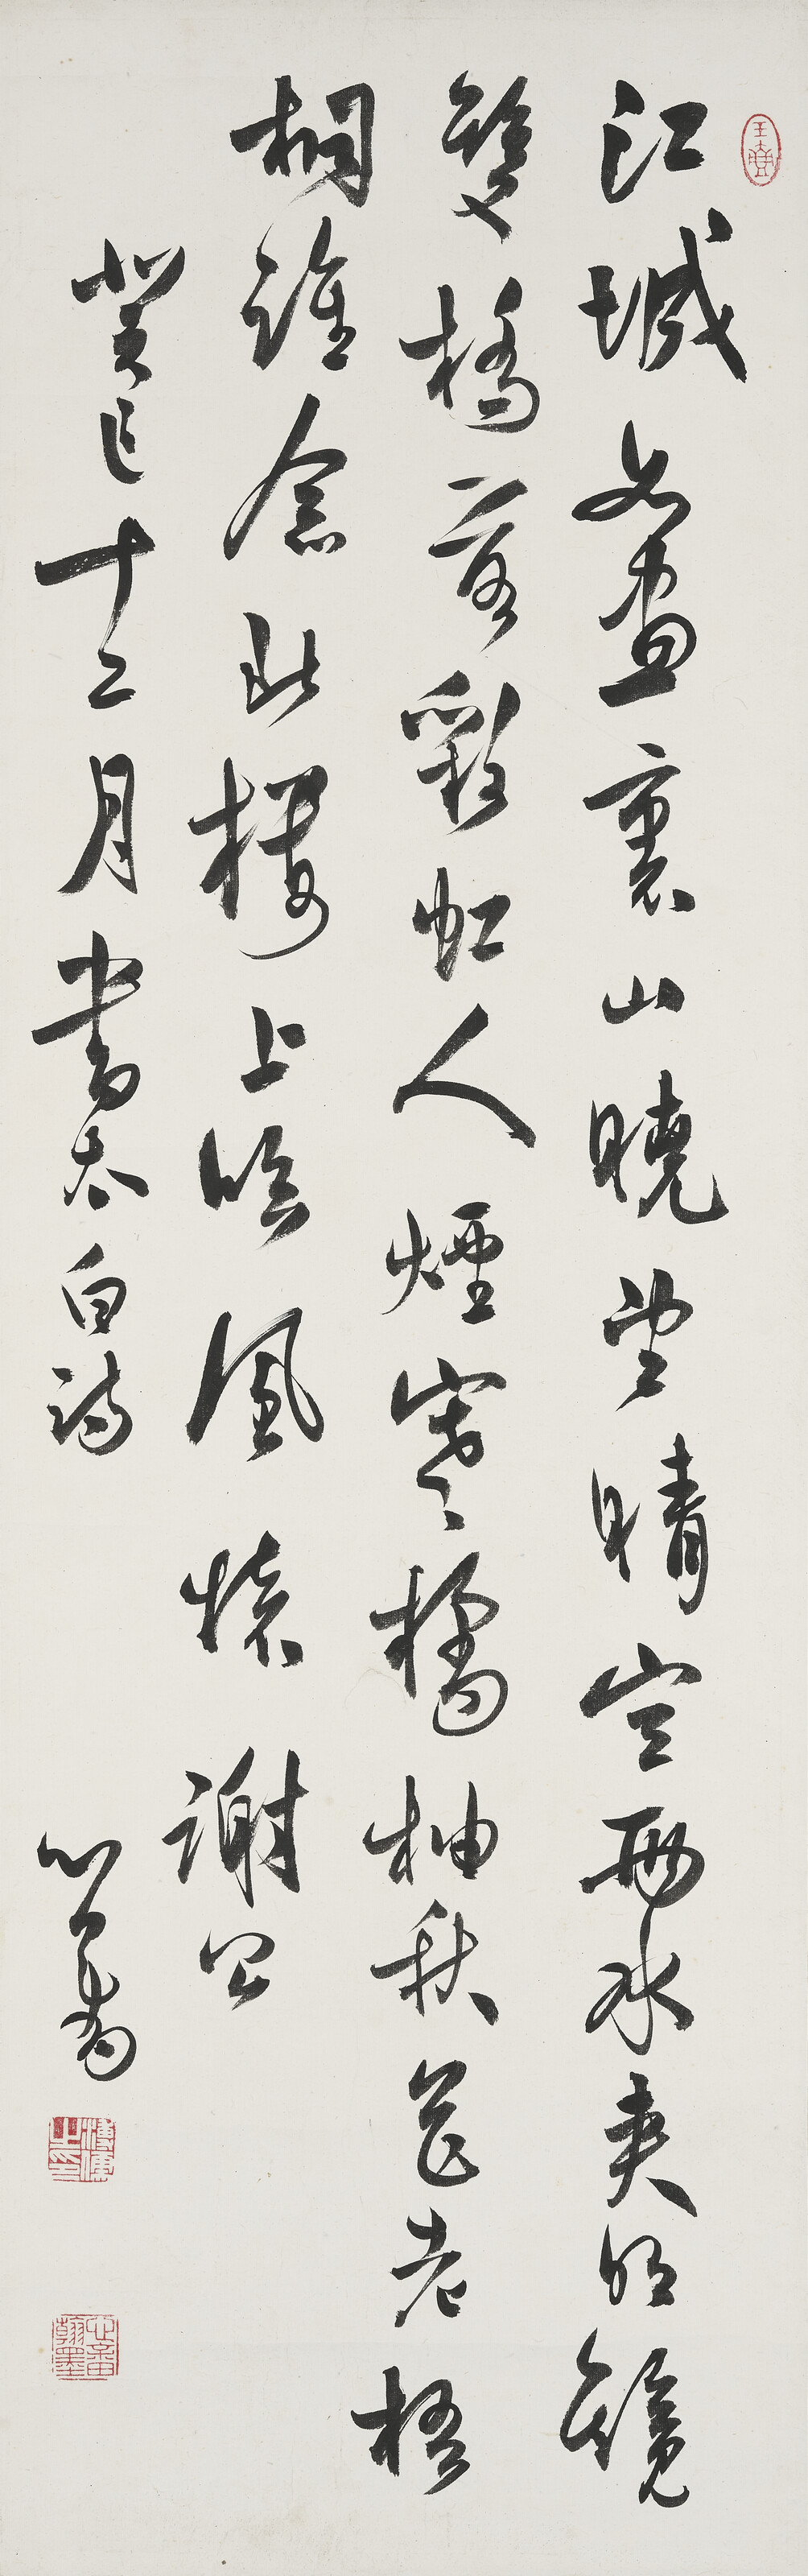 江城如畫裏山曉望晴空兩水夾明鏡
雙橋落彩虹人煙寒橘柚秋色老梧
桐誰念此樓上臨風懷謝公
癸巳十二月書太白詩
心畬
溥儒之印
心畬翰墨